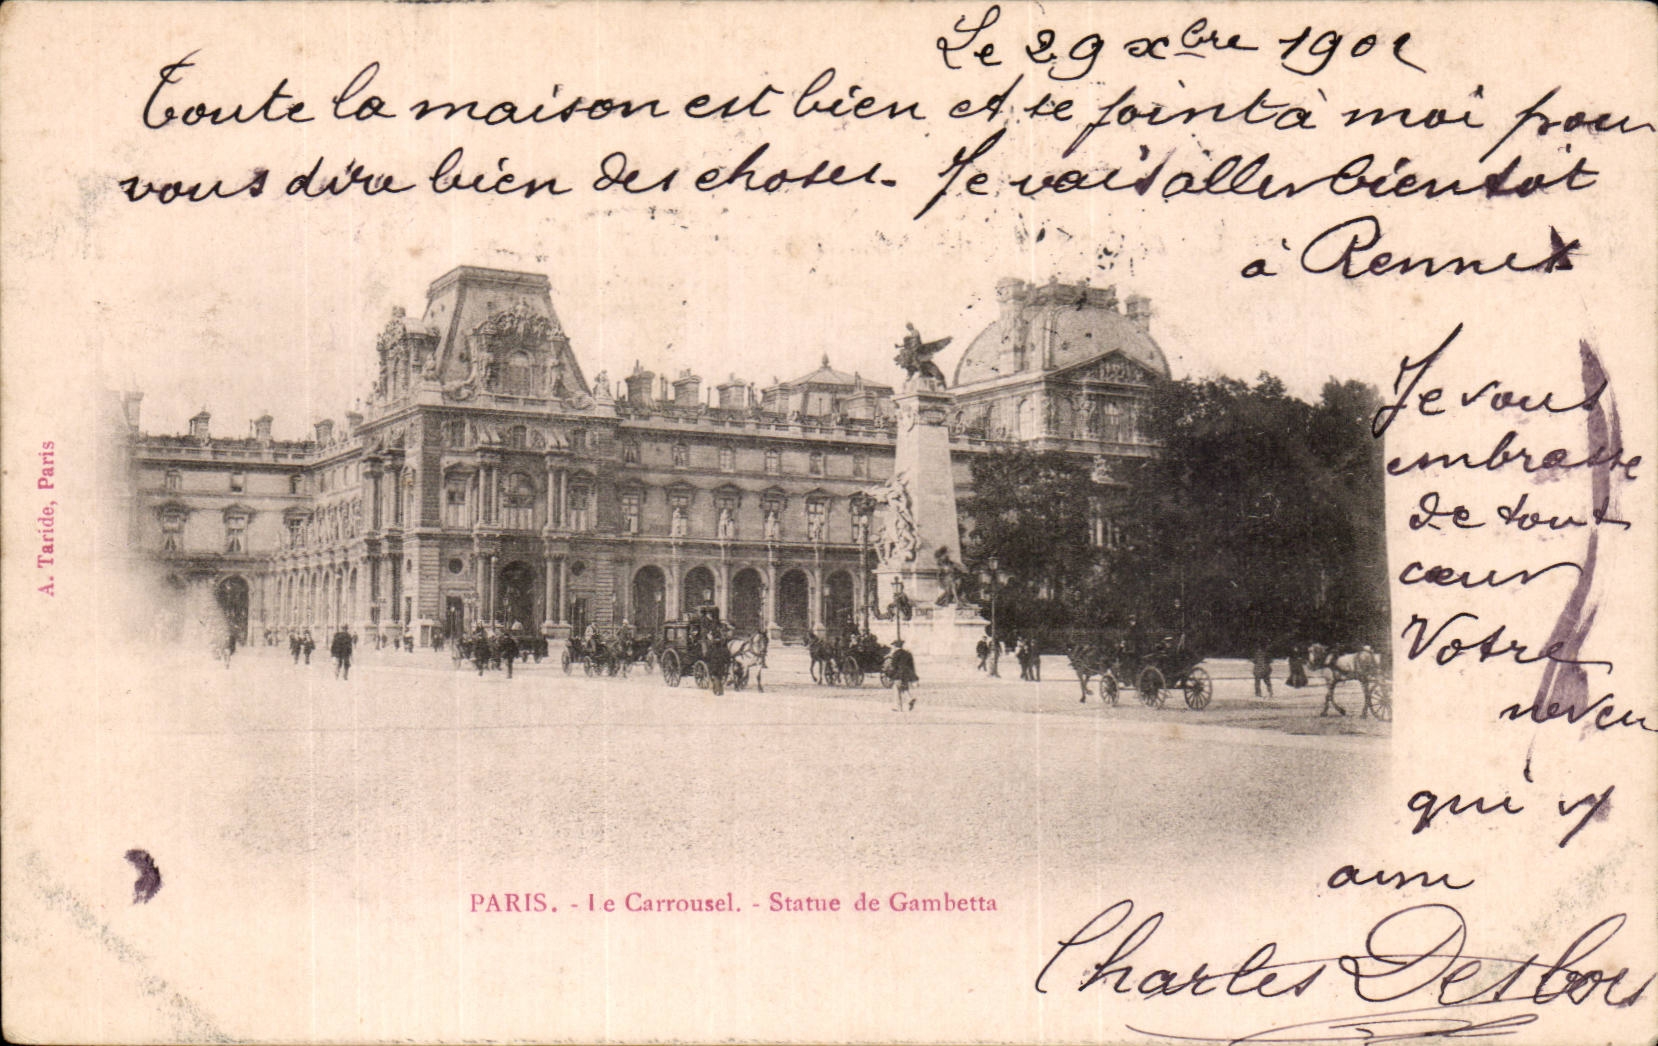 Le 29 xbre 1901
Toute la maison est bien et se joint à moi pour
vous dire bien des choses. Je vais aller bientôt
à Rennes
Je vous
embrasse
de tout
cœur
Votre
neveu
qui v
aime
Charles Desbois
A. Taride, Paris
PARIS. - Le Carrousel. - Statue de Gambetta